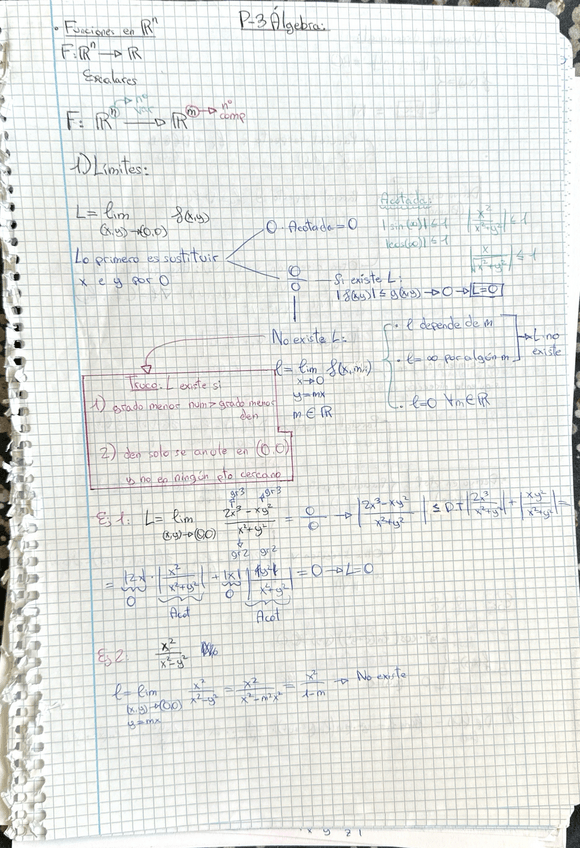 P-3 Álgebra:
• Funciones en ℝⁿ
F: ℝⁿ → ℝ
Escalares
F: ℝⁿ → ℝᵐ → nº comp
→ nº var
1) Límites:
L = lim f(x,y)
(x,y)→(0,0)
Lo primero es sustituir
x e y por 0
0 · Acotada = 0
Acotada:
|sin(α)| ≤ 1
|cos(α)| ≤ 1
|x²/(x²+y²)| ≤ 1
|x/√(x²+y²)| ≤ 1
0/0
Si existe L:
|f(x,y)| ≤ g(x,y) → 0 → L=0
No existe L:
ℓ = lim f(x,mx)
x→0
y=mx
m ∈ ℝ
• ℓ depende de m
• ℓ = ∞ por algún m
→ L no existe
• ℓ=0 ∀m∈ℝ
Truco: L existe si
1) grado menor num > grado menor
den
2) den solo se anule en (0,0)
y no en ningún pto cercano
gr3 gr3
Ej 1: L = lim (x,y)→(0,0) (2x³-xy²)/(x²+y²) = 0/0 → |(2x³-xy²)/(x²+y²)| ≤ D.T |2x³/(x²+y²)| + |xy²/(x²+y²)| =
gr2 gr2
= |2x| · |x²/(x²+y²)| + |x| |y²/(x²+y²)| = 0 → L=0
0 Acot 0 Acot
Ej 2: x²/(x²-y²)
ℓ = lim x²/(x²-y²) = x²/(x²-m²x²) = x²/(1-m) → No existe
(x,y)→(0,0)
y=mx